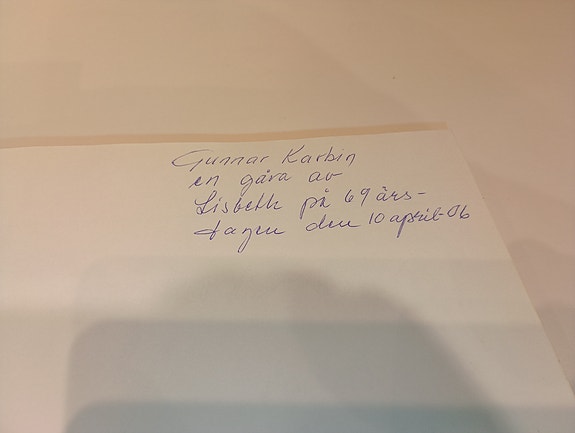 Gunnar Karbin
en gåva av
Lisbeth på 69 års-
dagen den 10 april-06